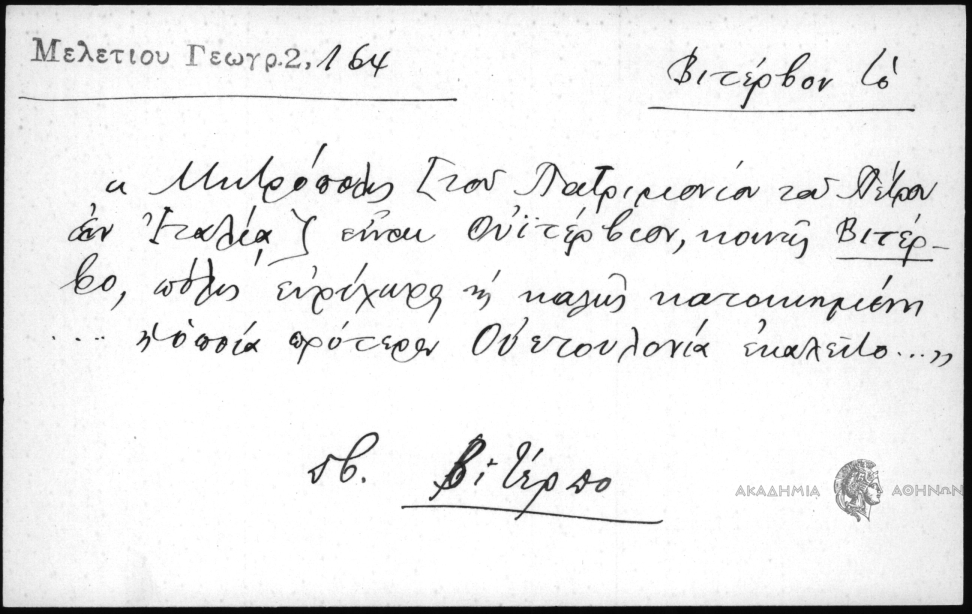 Μελετίου Γεωγρ.2, 164
Βιτέρβον τό
« Μητρόπολις [του Πατριμονίου του Πέτρου
ἐν Ἰταλίᾳ] εἶναι Οὐϊτέρβιον, κοινῶς Βιτέρ-
βο, πόλις εὐρύχωρος καὶ καλῶς κατοικημένη
... ἡ ὁποία πρότερον Οὐετουλονία ἐκαλεῖτο...»
πβ. Βιτέρπο
ΑΚΑΔΗΜΙΑ ΑΘΗΝΩΝ